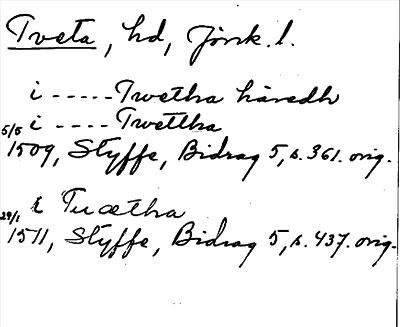 Tveta, hd, Jönk. l.
i ----- Twetha häredh
5/5 i ---- Twettha
1509, Styffe, Bidrag 5, s. 361. orig.
29/1 i Tucetha
1511, Styffe, Bidrag 5, s. 437. orig.